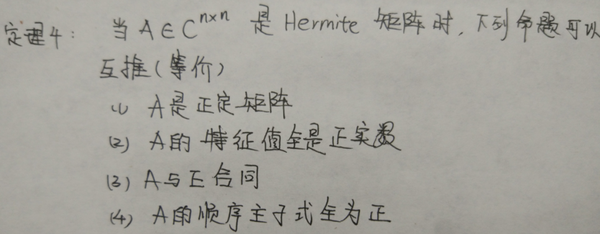 定理4: 当 A∈C^{n×n} 是 Hermite 矩阵时, 下列命题可以
互推(等价)
(1) A是正定矩阵
(2) A的特征值全是正实数
(3) A与E合同
(4) A的顺序主子式全为正